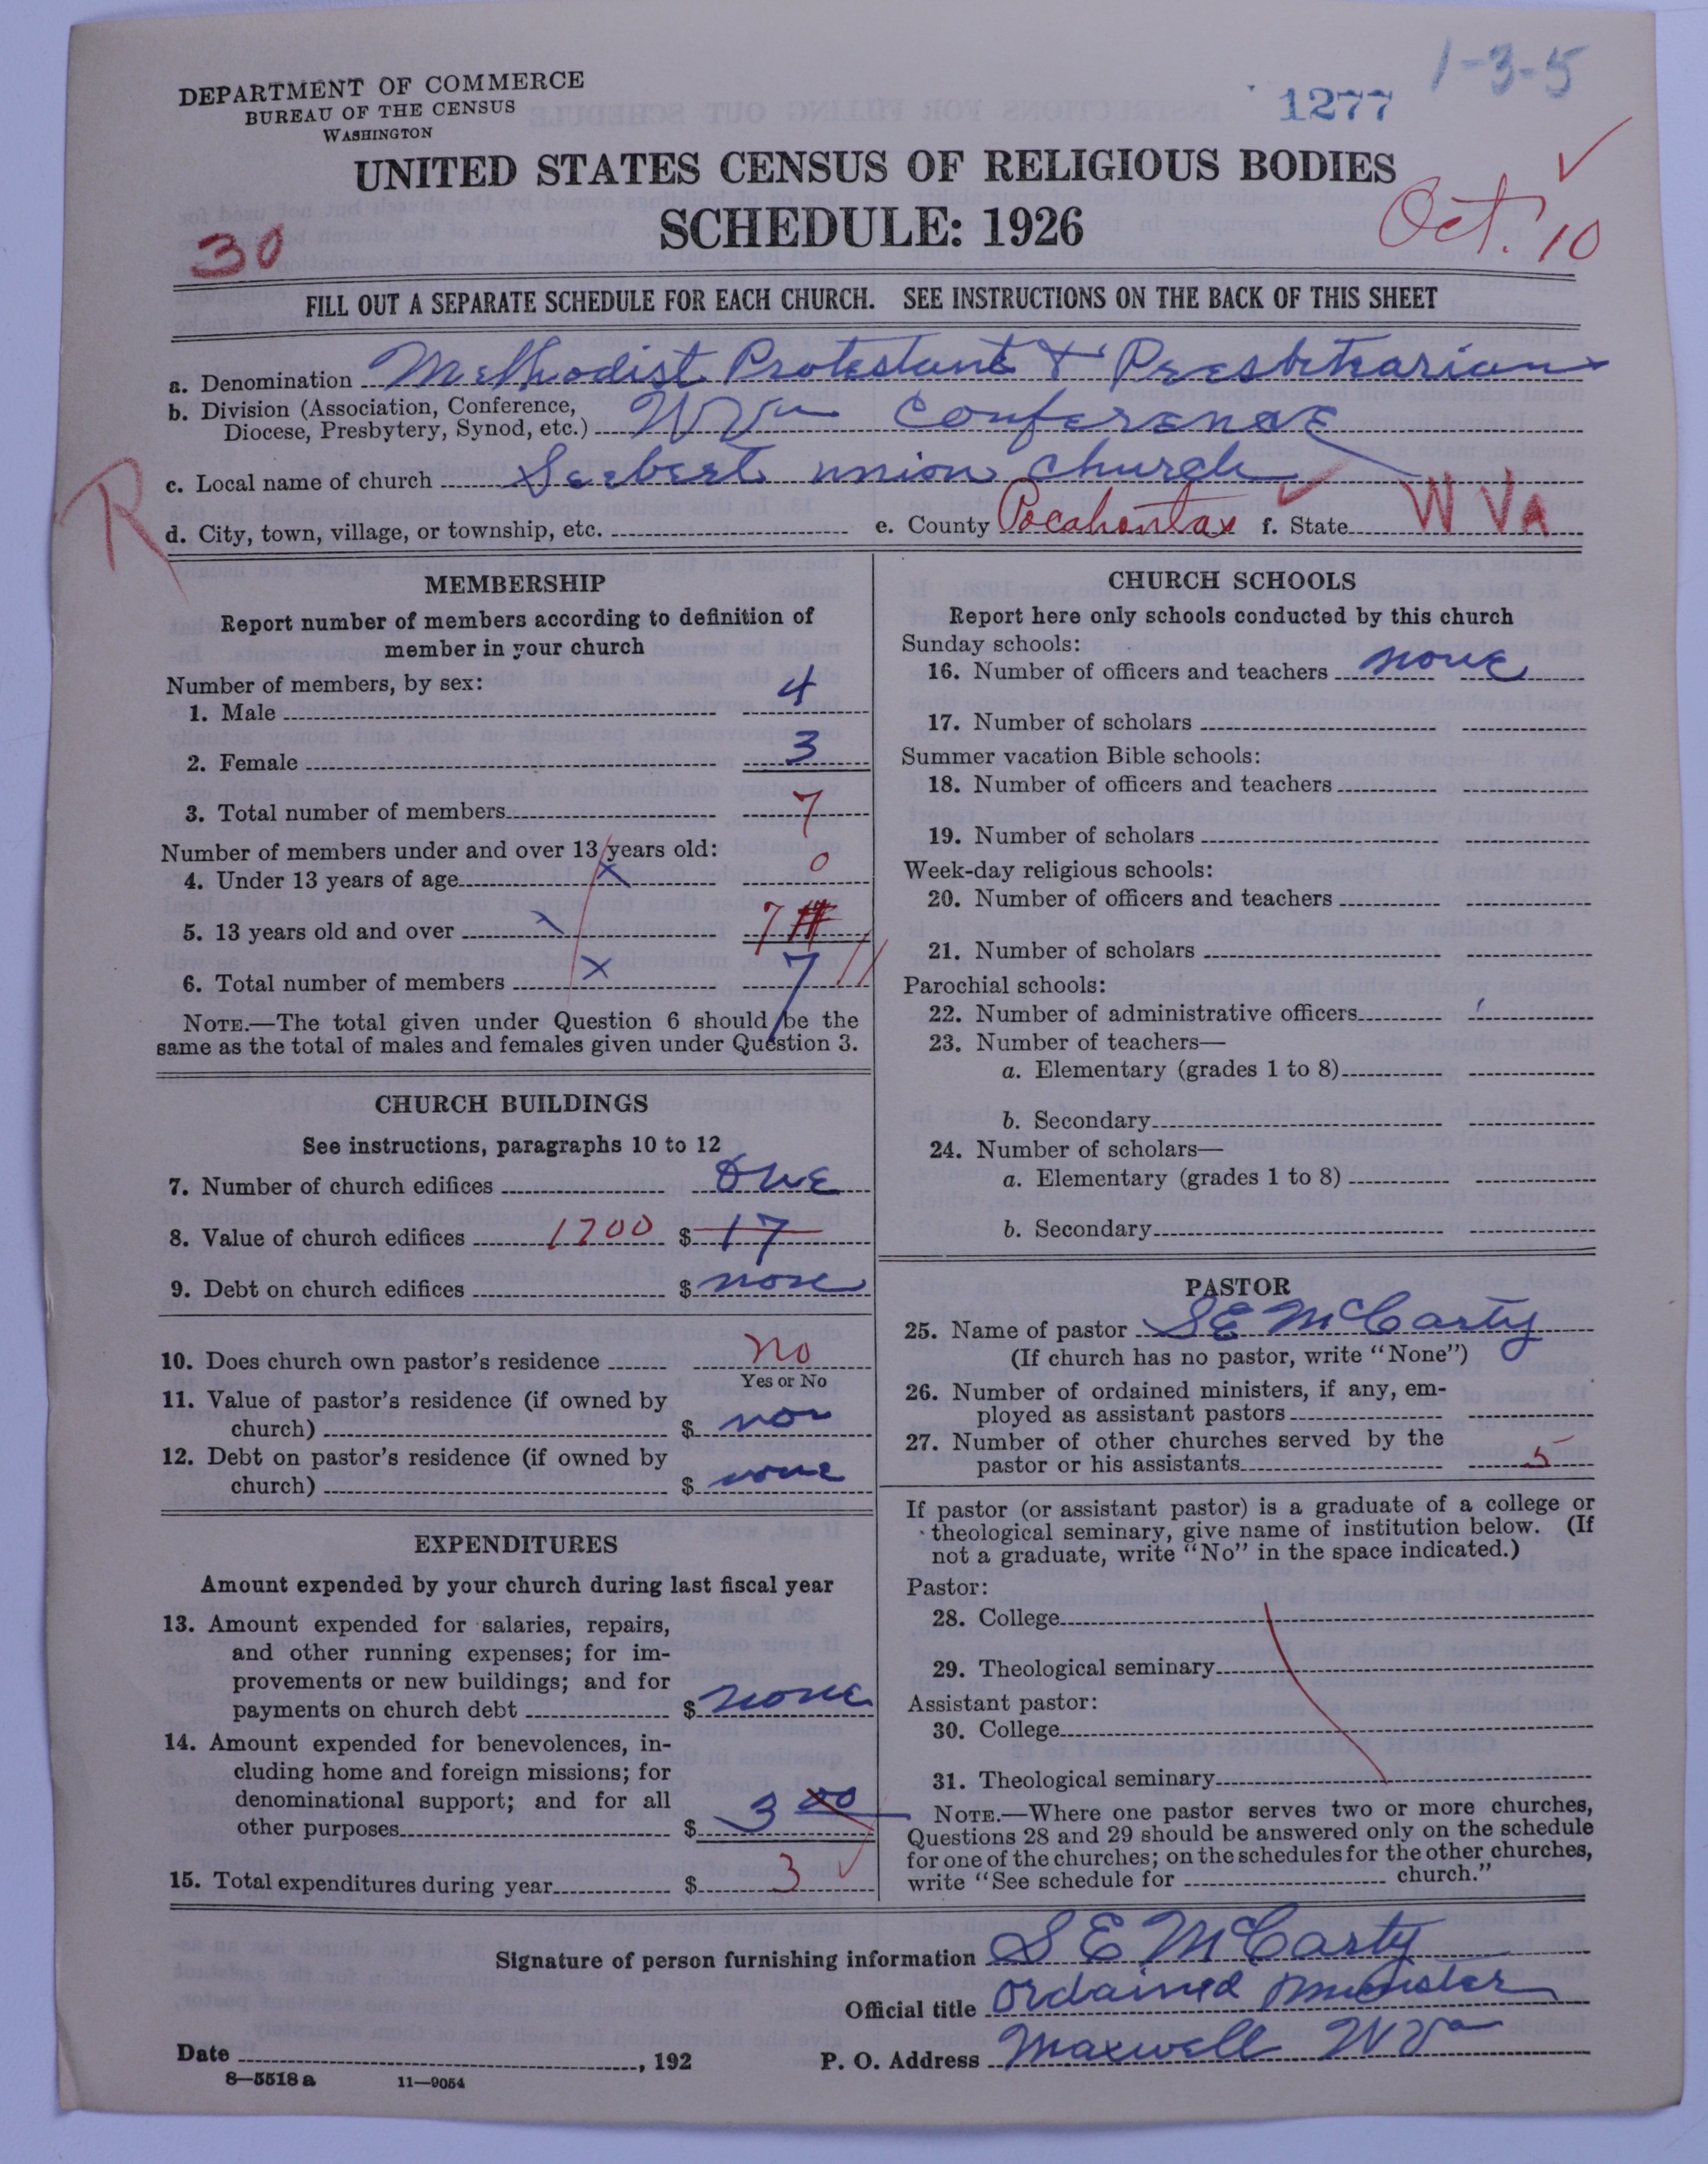 DEPARTMENT OF COMMERCE
BUREAU OF THE CENSUS
WASHINGTON
1277
1-3-5
UNITED STATES CENSUS OF RELIGIOUS BODIES
SCHEDULE: 1926
30
Oct. 10
FILL OUT A SEPARATE SCHEDULE FOR EACH CHURCH. SEE INSTRUCTIONS ON THE BACK OF THIS SHEET
a. Denomination Methodist Protestant & Presbitearian
b. Division (Association, Conference,
Diocese, Presbytery, Synod, etc.) W Va Conference
c. Local name of church Seebert union church
R
d. City, town, village, or township, etc. e. County Pocahontas f. State W VA
MEMBERSHIP
Report number of members according to definition of
member in your church
Number of members, by sex:
1. Male 4
2. Female 3
3. Total number of members 7
Number of members under and over 13 years old:
4. Under 13 years of age x 0
5. 13 years old and over 7
6. Total number of members x 7
NOTE.—The total given under Question 6 should be the
same as the total of males and females given under Question 3.
CHURCH BUILDINGS
See instructions, paragraphs 10 to 12
7. Number of church edifices one
8. Value of church edifices 1700 $ 17
9. Debt on church edifices $ none
10. Does church own pastor's residence no
Yes or No
11. Value of pastor's residence (if owned by
church) $ non
12. Debt on pastor's residence (if owned by
church) $ none
EXPENDITURES
Amount expended by your church during last fiscal year
13. Amount expended for salaries, repairs,
and other running expenses; for im-
provements or new buildings; and for
payments on church debt $ none
14. Amount expended for benevolences, in-
cluding home and foreign missions; for
denominational support; and for all
other purposes $ 3 00
15. Total expenditures during year $ 3
CHURCH SCHOOLS
Report here only schools conducted by this church
Sunday schools:
16. Number of officers and teachers none
17. Number of scholars
Summer vacation Bible schools:
18. Number of officers and teachers
19. Number of scholars
Week-day religious schools:
20. Number of officers and teachers
21. Number of scholars
Parochial schools:
22. Number of administrative officers
23. Number of teachers—
a. Elementary (grades 1 to 8)
b. Secondary
24. Number of scholars—
a. Elementary (grades 1 to 8)
b. Secondary
PASTOR
25. Name of pastor S E McCarty
(If church has no pastor, write "None")
26. Number of ordained ministers, if any, em-
ployed as assistant pastors
27. Number of other churches served by the
pastor or his assistants 5
If pastor (or assistant pastor) is a graduate of a college or
theological seminary, give name of institution below. (If
not a graduate, write "No" in the space indicated.)
Pastor:
28. College
29. Theological seminary
Assistant pastor:
30. College
31. Theological seminary
NOTE.—Where one pastor serves two or more churches,
Questions 28 and 29 should be answered only on the schedule
for one of the churches; on the schedules for the other churches,
write "See schedule for church."
Signature of person furnishing information S E McCarty
Official title ordained minister
Date , 192 P. O. Address Maxwell W Va
8—5518 a 11—9054